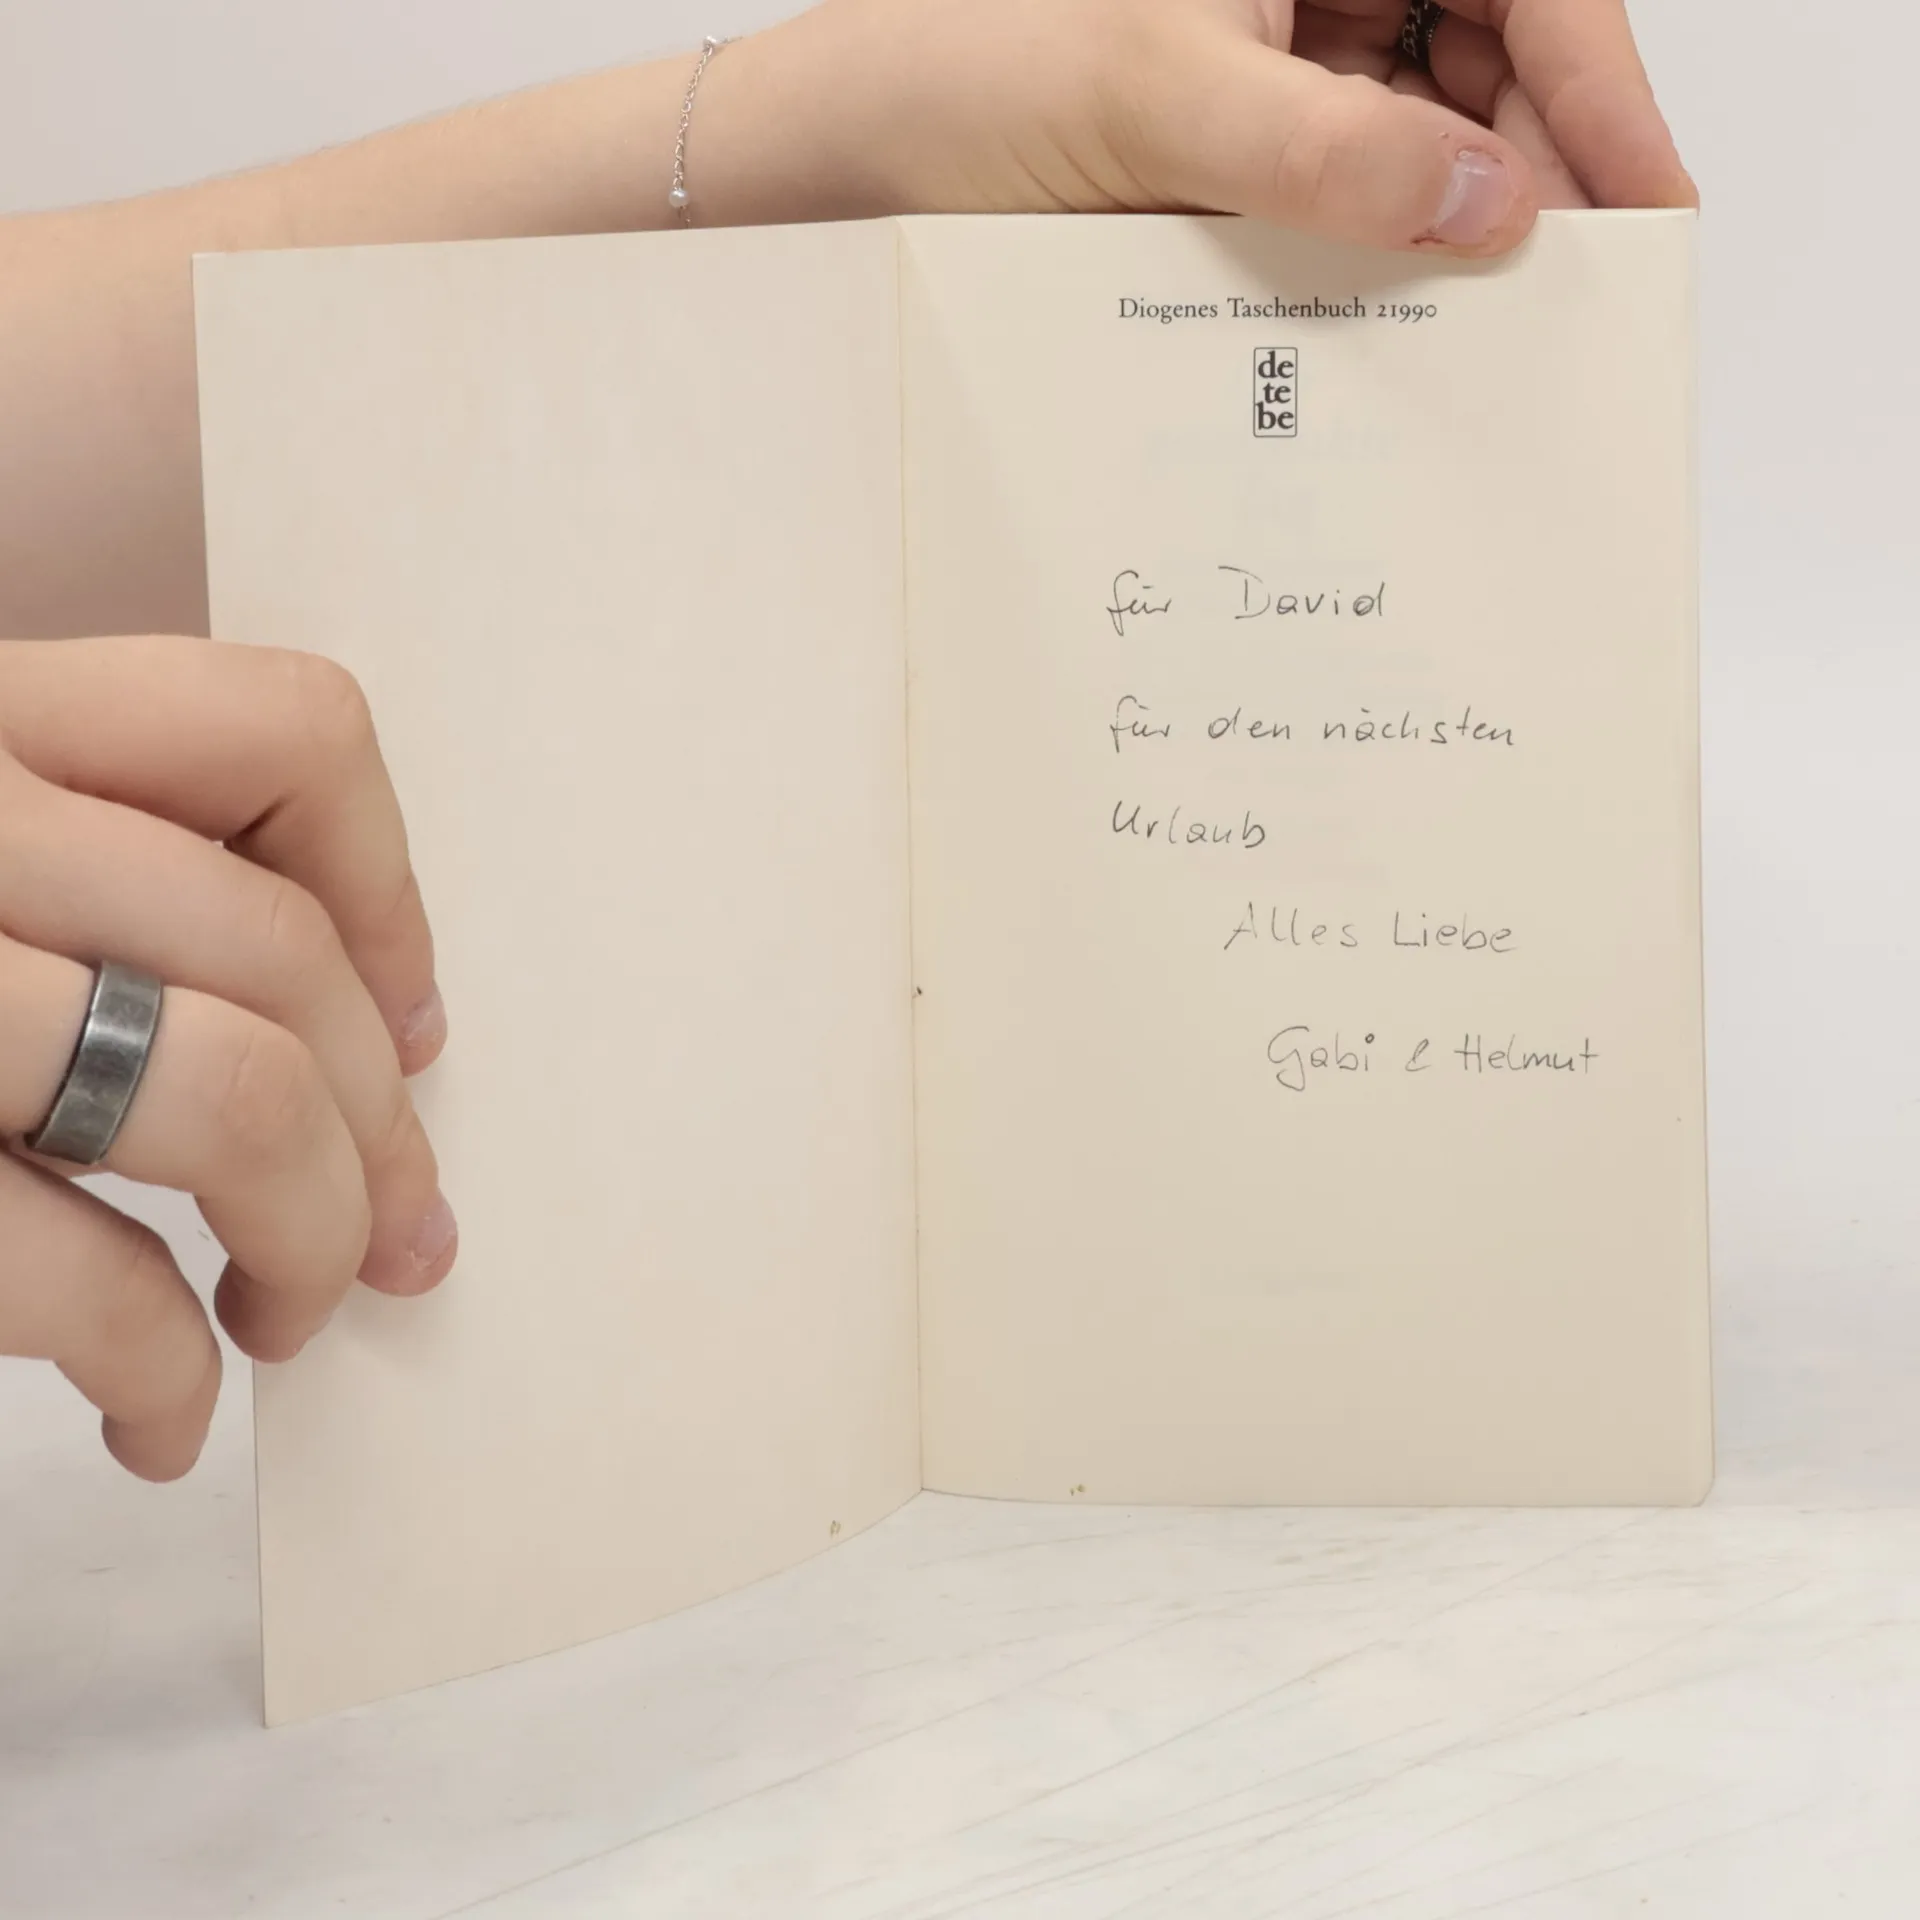 Diogenes Taschenbuch 21990
de
te
be
für David
für den nächsten
Urlaub
Alles Liebe
Gabi & Helmut